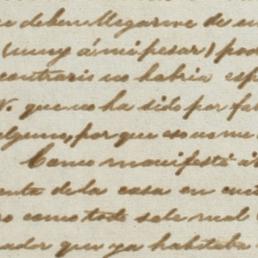 deben llegarme de su
(muy á mi pesar) pod
contrario no habria esp
V. que no ha sido por fal
alguno, por que eso no me
Como manifesté á
enta de la casa en cu
como todo sale mal
ador que ya habitaba